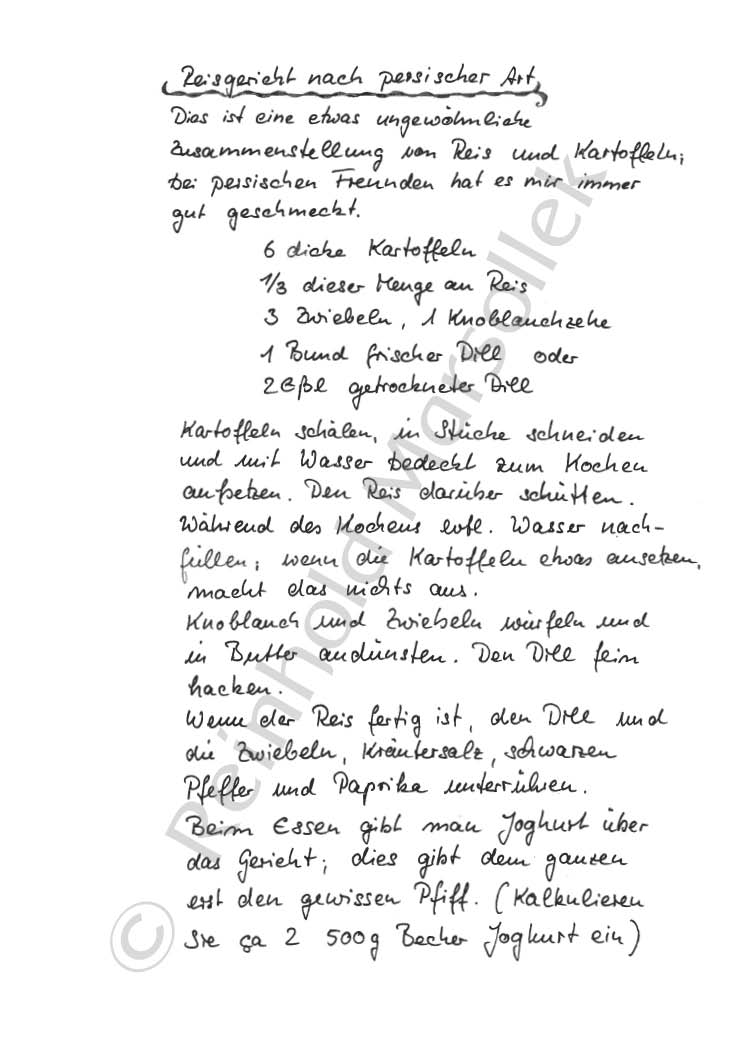 Reisgericht nach persischer Art
Dies ist eine etwas ungewöhnliche
Zusammenstellung von Reis und Kartoffeln;
bei persischen Freunden hat es mir immer
gut geschmeckt.
6 dicke Kartoffeln
1/3 dieser Menge an Reis
3 Zwiebeln, 1 Knoblauchzehe
1 Bund frischer Dill oder
2 Eßl getrockneter Dill
Kartoffeln schälen, in Stücke schneiden
und mit Wasser bedeckt zum Kochen
aufsetzen. Den Reis darüber schütten.
Während des Kochens evtl. Wasser nach-
füllen; wenn die Kartoffeln etwas ansetzen,
macht das nichts aus.
Knoblauch und Zwiebeln würfeln und
in Butter andünsten. Den Dill fein
hacken.
Wenn der Reis fertig ist, den Dill und
die Zwiebeln, Kräutersalz, schwarzen
Pfeffer und Paprika unterrühren.
Beim Essen gibt man Joghurt über
das Gericht; dies gibt dem ganzen
erst den gewissen Pfiff. (Kalkulieren
Sie ça 2 500g Becher Joghurt ein)
© Reinhold Marsollek